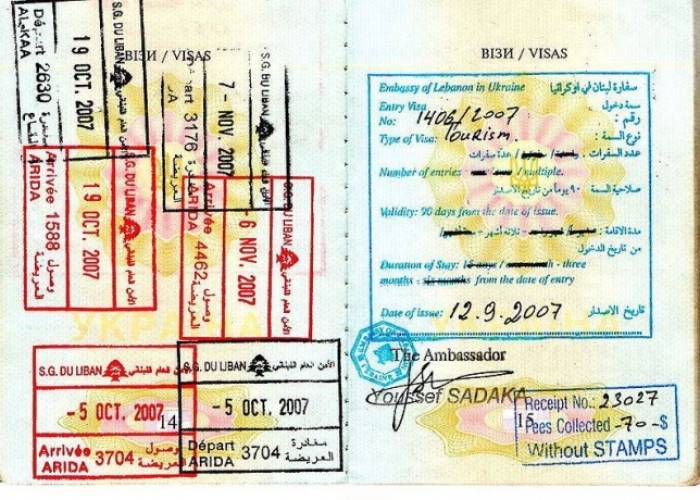 ВІЗИ / VISAS
S.G. DU LIBAN الأمن العام اللبناني
19 OCT. 2007
Départ 2630
AL-KAA
S.G. DU LIBAN
7 - NOV. 2007
Départ 3176
S.G. DU LIBAN الأمن العام اللبناني
19 OCT. 2007
Arrivée 1588 وصول
ARIDA العريضة
S.G. DU LIBAN الأمن العام اللبناني
6 NOV. 2007
Arrivée 4462 وصول
ARIDA العريضة
УКРАЇНА
S.G. DU LIBAN الأمن العام اللبناني
- 5 OCT. 2007
Arrivée 3704 وصول
ARIDA العريضة
S.G. DU LIBAN الأمن العام اللبناني
- 5 OCT. 2007
Départ 3704 مغادرة
ARIDA العريضة
14
ВІЗИ / VISAS
Embassy of Lebanon in Ukraine سفارة لبنان في أوكرانيا
Entry Visa سمة دخول
No: 1406/2007 رقم :
Type of Visa: Tourism نوع السمة :
عدد السفرات :
Number of entries multiple.
صلاحية السمة ٩٠ يوماً من تاريخ الاصدار
Validity: 90 days from the date of issue.
مدة الاقامة :
من تاريخ الدخول
Duration of Stay: 15 days / - three
months - six months from the date of entry
Date of issue: 12.9.2007 تاريخ الاصدار
The Ambassador
Youssef SADAKA
15
Receipt No.: 23027
Fees Collected -70-$
Without STAMPS